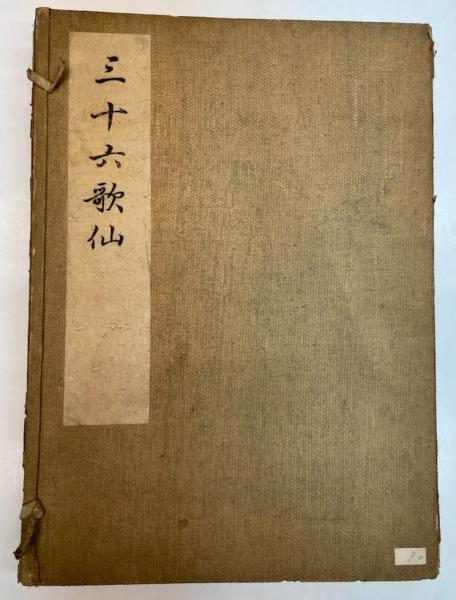 三十六歌仙